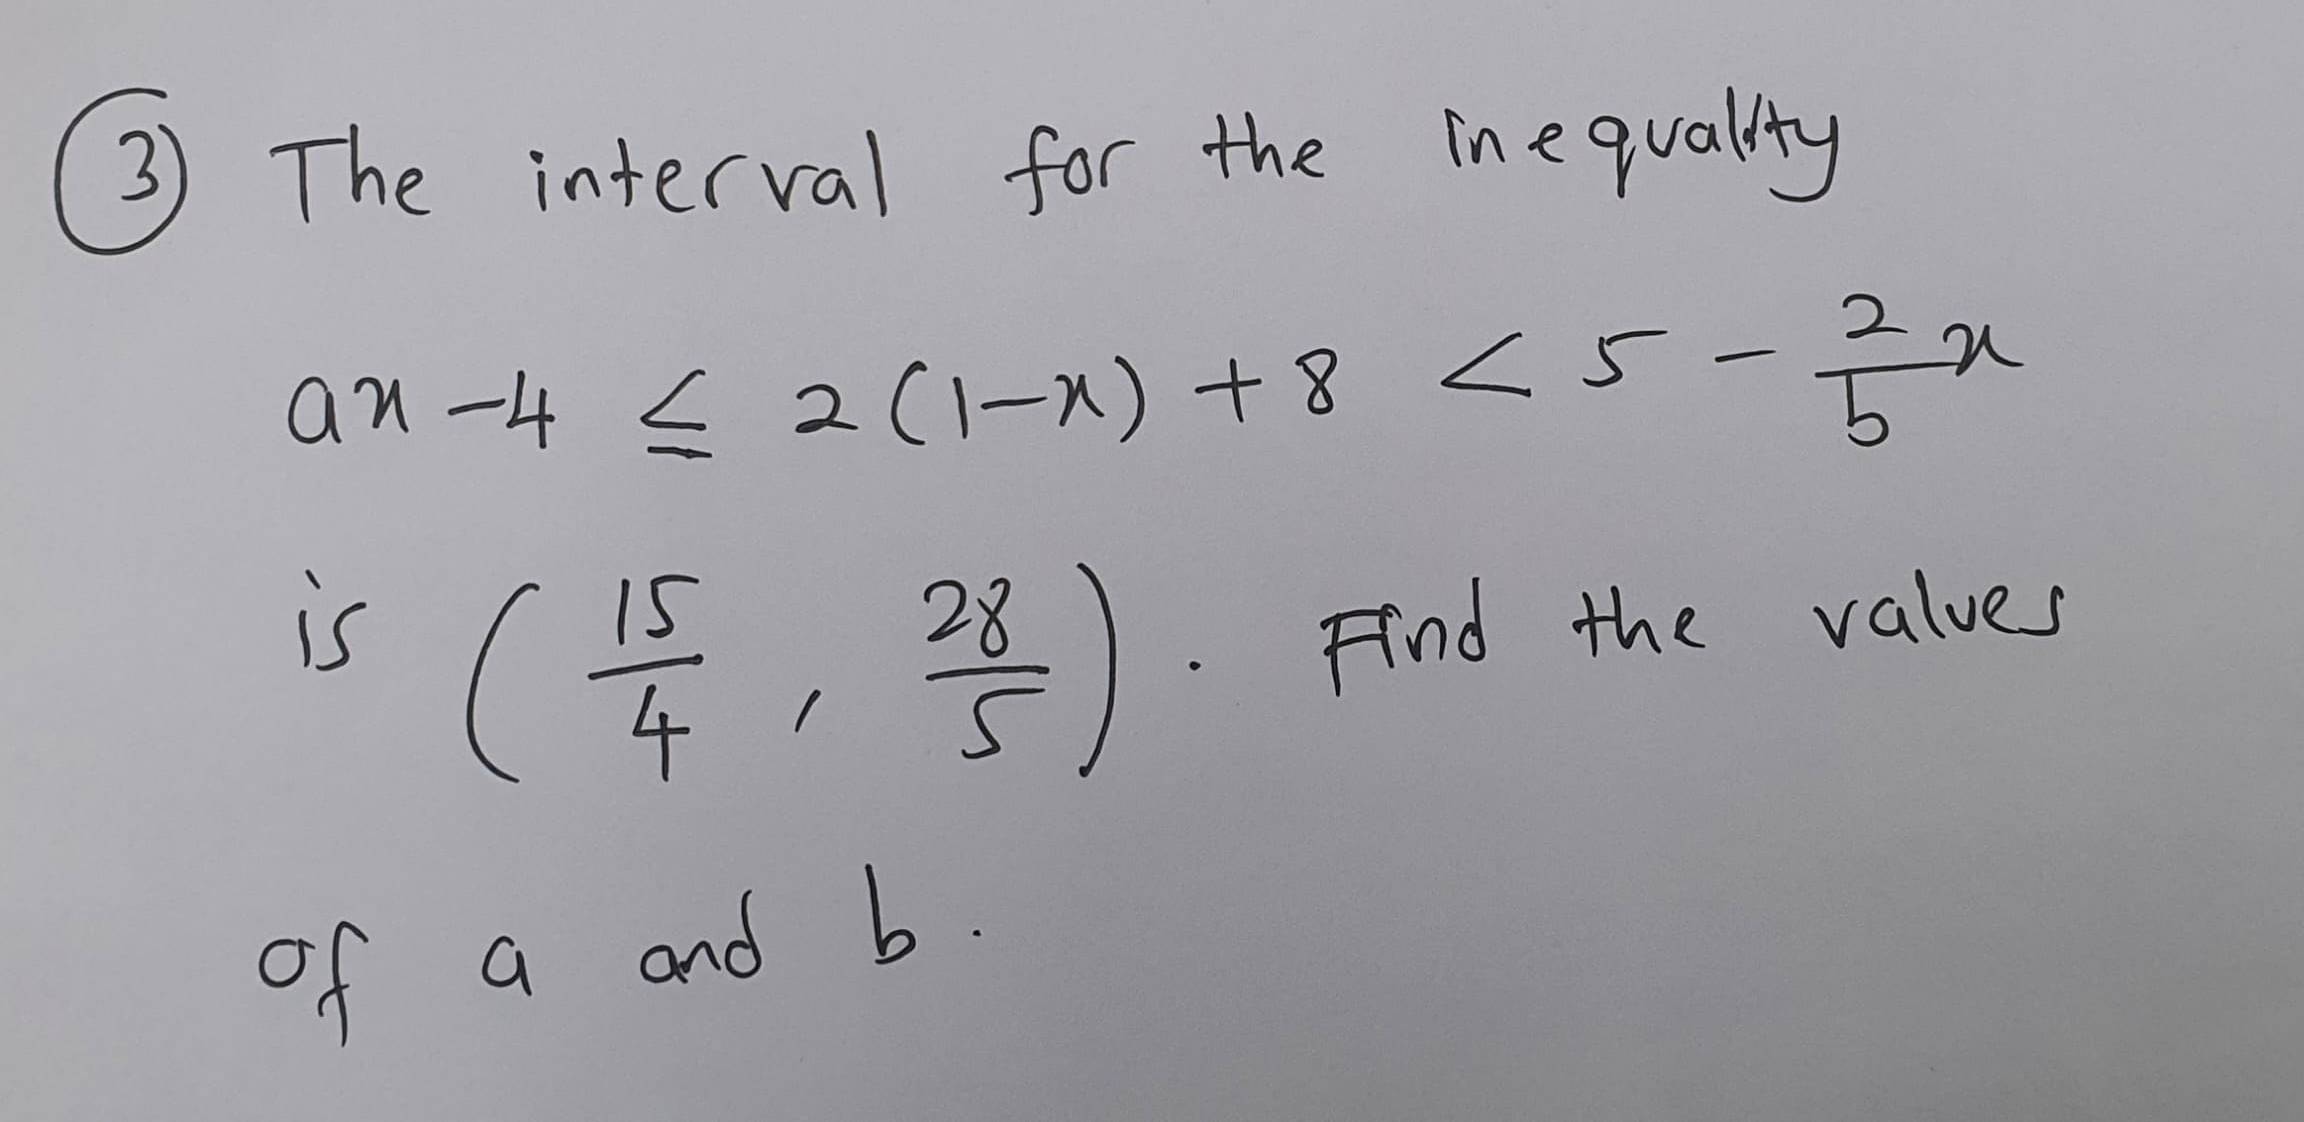 ③ The interval for the inequality
ax - 4 ≤ 2(1-x) + 8 < 5 - \frac{2}{b}x
is (\frac{15}{4}, \frac{28}{5}). Find the values
of a and b.